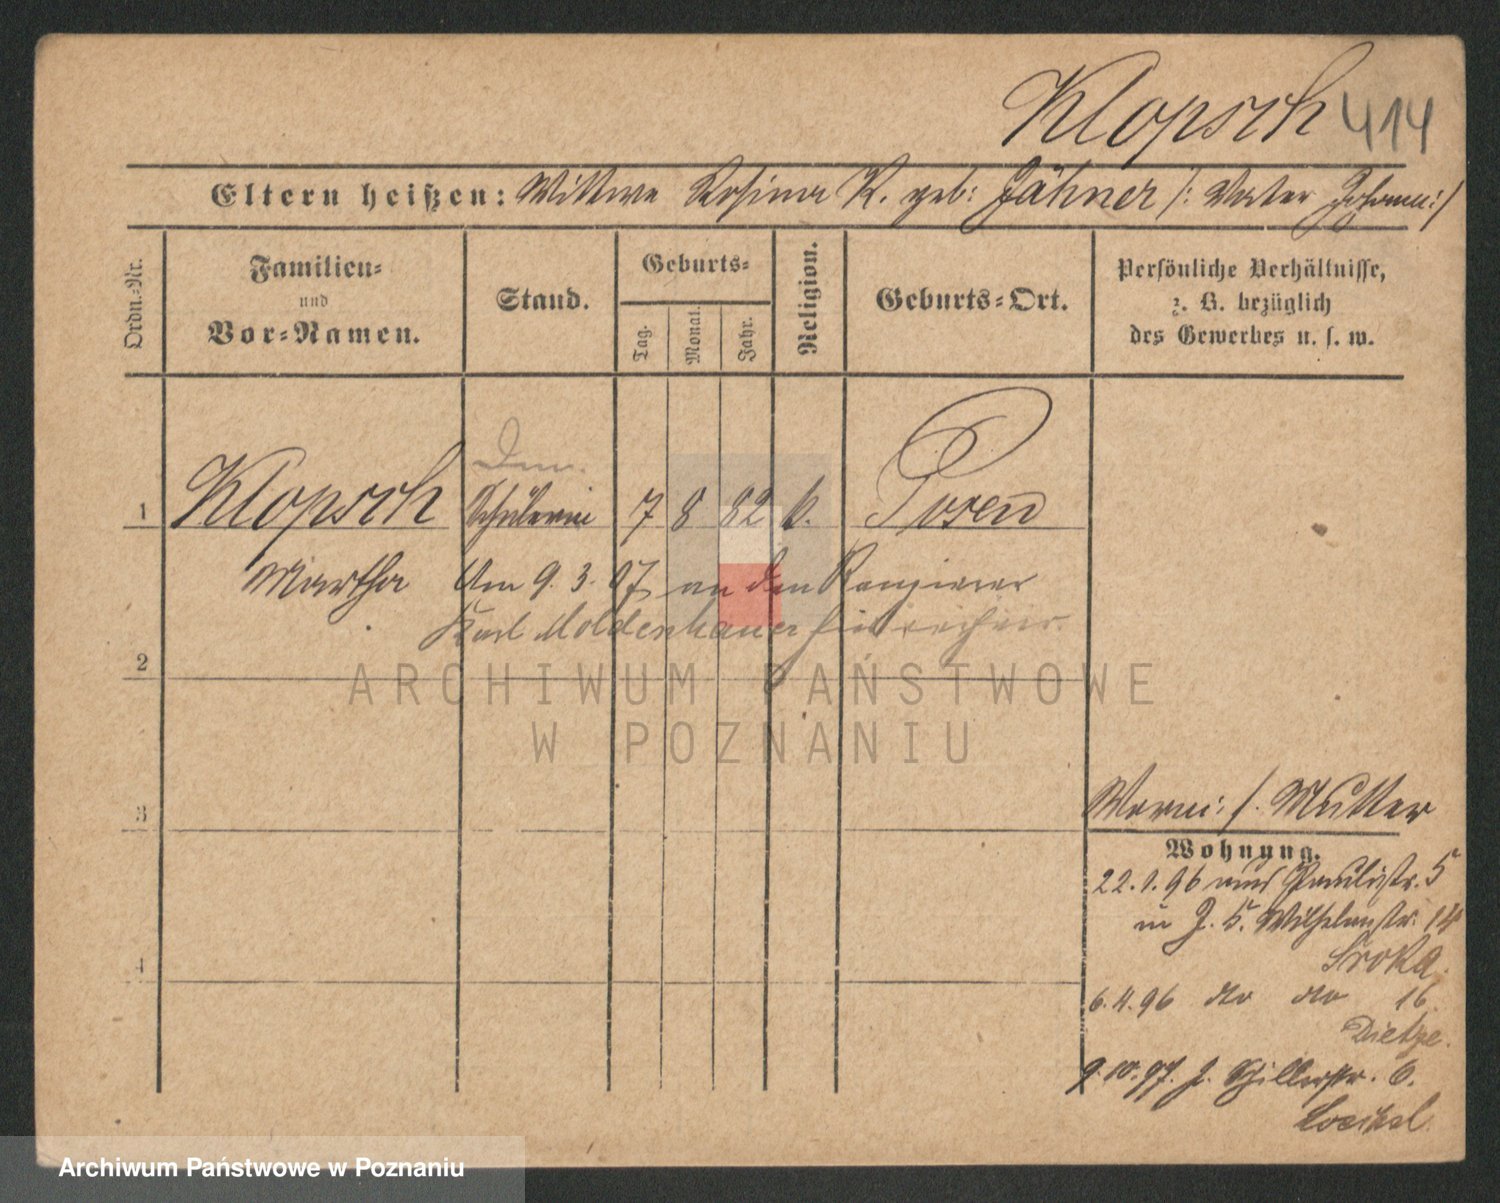 Klopsch 414
Eltern heißen: Wittwe Rosina K. geb: Jähner /: Vater Johann :/
Ordn.-Nr.
Familien-
und
Vor-Namen.
Stand.
Geburts-
Tag.
Monat.
Jahr.
Religion.
Geburts-Ort.
Persönliche Verhältnisse,
z. B. bezüglich
des Gewerbes u. s. w.
1 Klopsch Schülerin 7 8 82 k. Posen
Martha Am 9. 3. 97 an den Rangierer
Karl Moldenhauer hier
2
3
4
/. Mutter
Wohnung.
22.1.96 aus Paulistr. 5
in J. 5. Wilhelmstr. 14
Sroka
6.4.96 do do 16
Dietze.
9.10.97. J. Schillerstr. 6.
ARCHIWUM PAŃSTWOWE
W POZNANIU
Archiwum Państwowe w Poznaniu